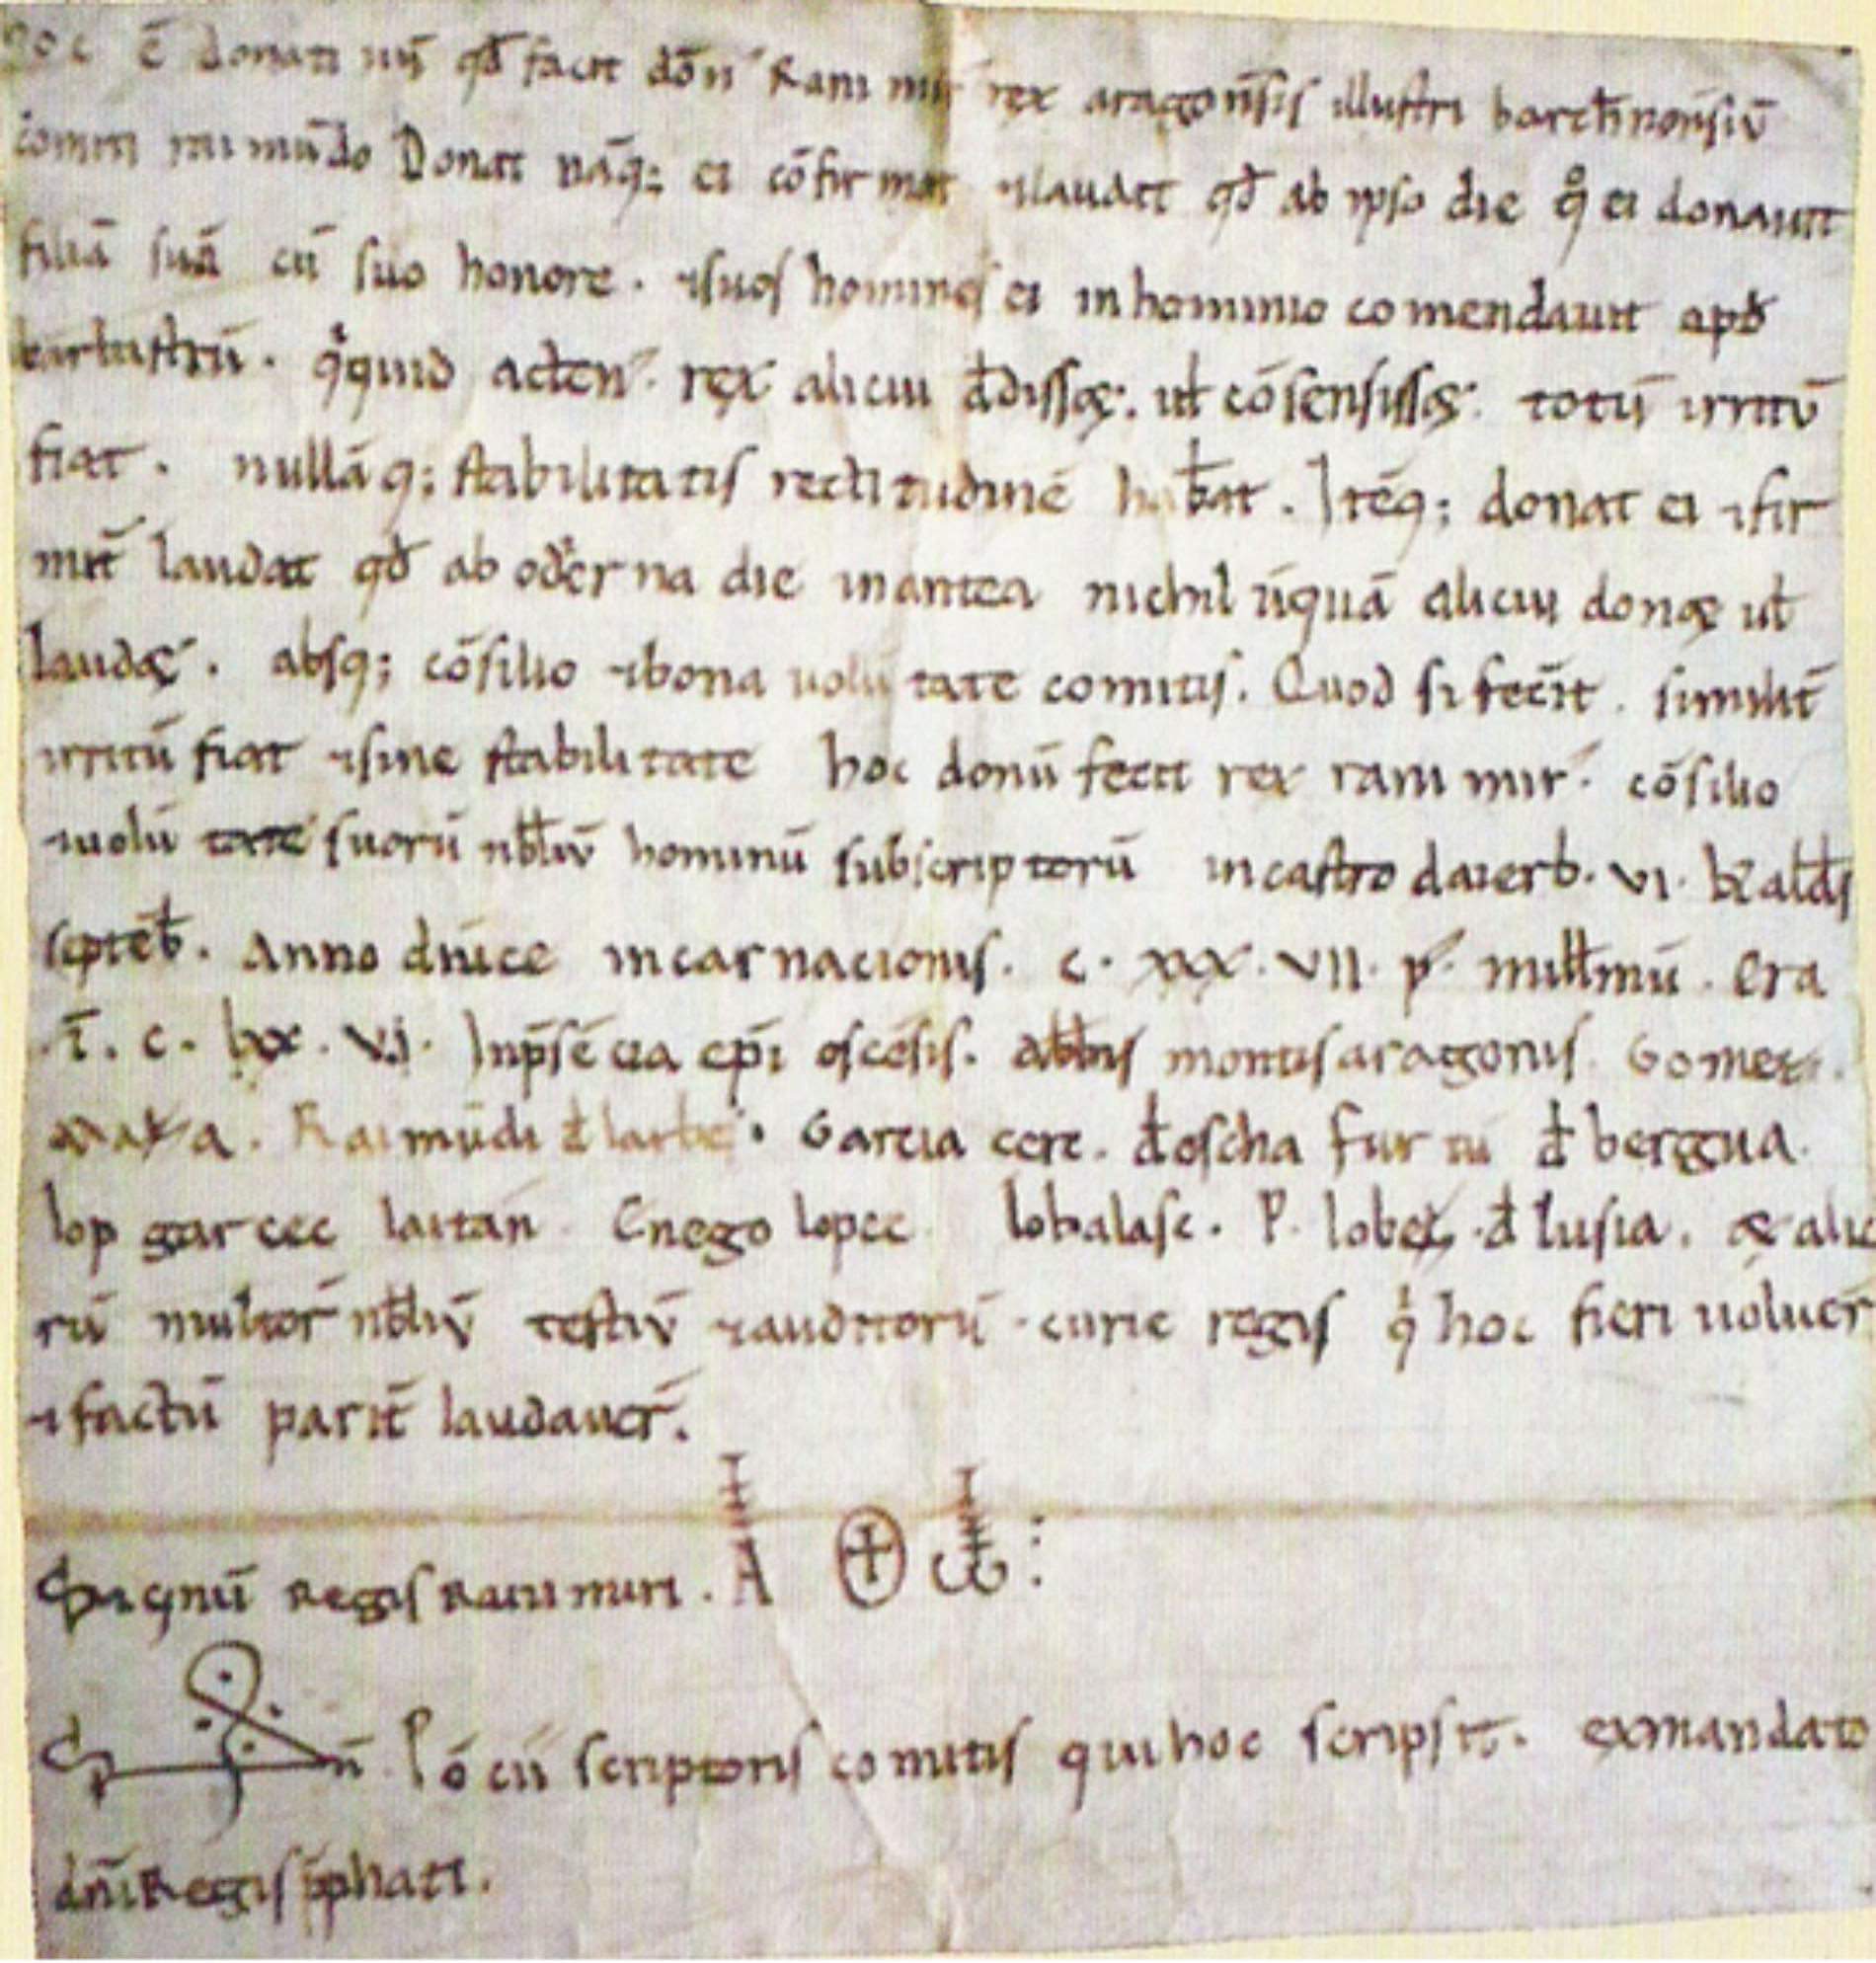 hoc ē donati uū qđ facit dōn' Rani mir' rex aragon̄sis illustri barch̄nonsiū
comiti rai mūdo Donat nāq; ei cōfir mat ⁊laudat qđ ab ipso die qͦ ei donauit
filiā suā cū suo honore. ⁊suos homines ei inhominio co mendauit apđ
barbastrū. qͥquid acten'. rex alicui đdissꝫ. uł cōsensissꝫ. totū irritū
fiat. nullāq; stabilitatis rectitudinē hab̄at. Itēq; donat ei ⁊fir
mit̄ laudat qđ ab odierna die inantea nichil ūquā alicui donꝫ uł
laudꝫ. absq; cōsilio ⁊bona uolū tate comitis. Quod si fec̄it. similit̄
irritū fiat ⁊sine stabilitate hoc donū fecit rex rani mir'. cōsilio
⁊uolū tate suorū nb̄liū hominū subscriptorū incastro daierb. vi. kałds
septēb. Anno dn̄ice incarnacionis. c. xxx. vii. p'. milłmū. era
.ī. c. lxx. v. Inp̄sē cia ep̄i oscēsis. abb̄is montisaragonis
Raimūdi đ larbe. Garcia cerc. đoscha fur tū đ bergua.
lop garcec laitan Enego lopec P. lobez. đ lusia. & alio
rū multor' nb̄liū testiū ⁊auditorū. curie regis qͥ hoc fieri uoluer̄
⁊factū parit̄ laudauer̄.
Signū Regis Raiumiri. A ⊕ ω :
S n̄ Pō cii scriptoris comitis qui hoc scripsit. exmandato
dn̄i Regis p̄phati.